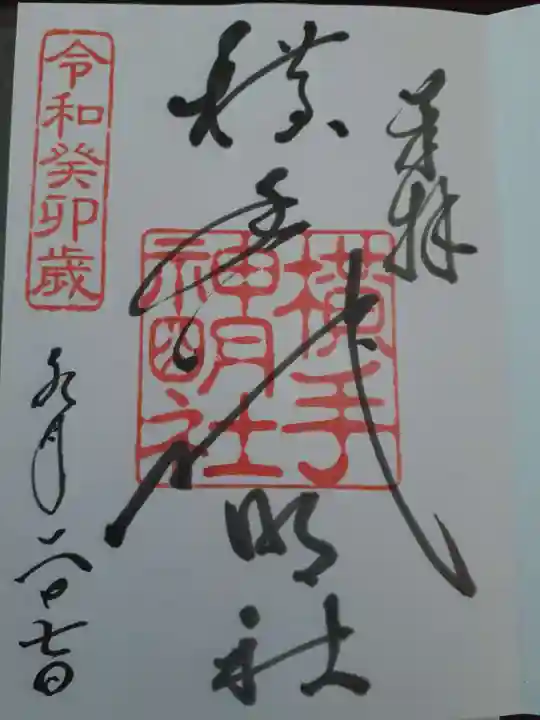 奉拝
横手神明社
横手
神明社
令和癸卯歳
月 七日